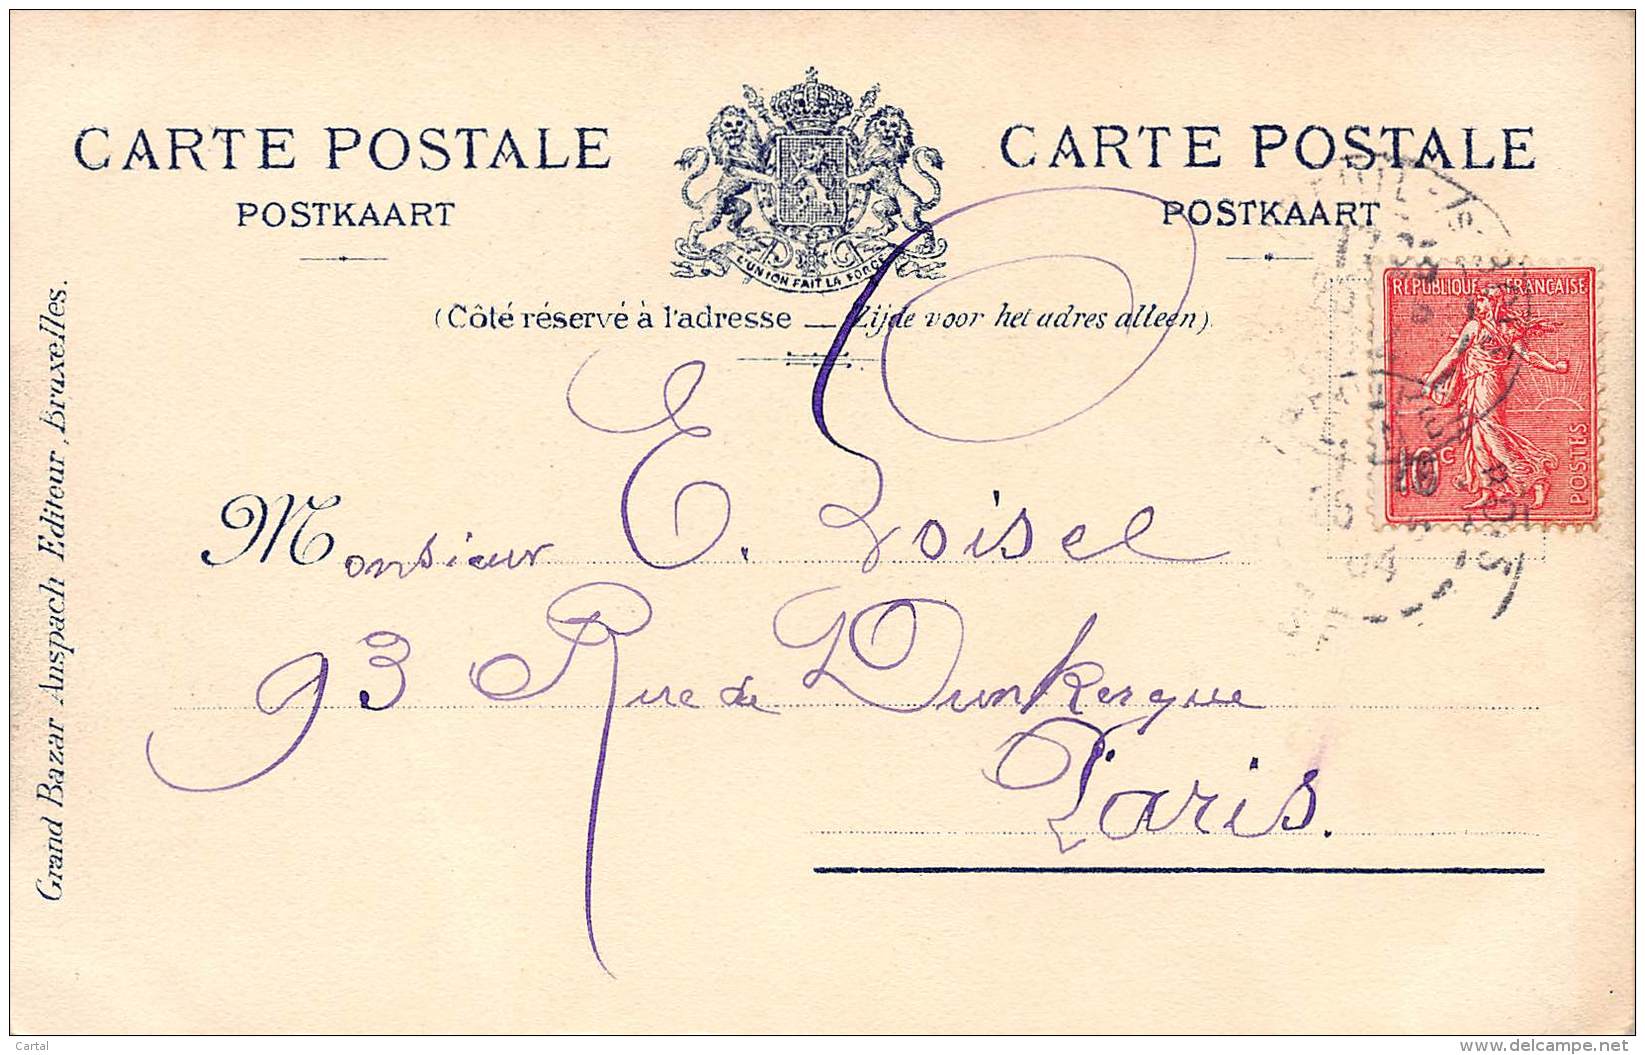 CARTE POSTALE
POSTKAART
L'UNION FAIT LA FORCE
CARTE POSTALE
POSTKAART
(Côté réservé à l'adresse — Zijde voor het adres alleen).
RÉPUBLIQUE FRANÇAISE
10 c
POSTES
04
Monsieur E. Loisel
93 Rue de Dunkerque
Paris.
Grand Bazar Anspach Editeur, Bruxelles.
Cartal
delcampe.net